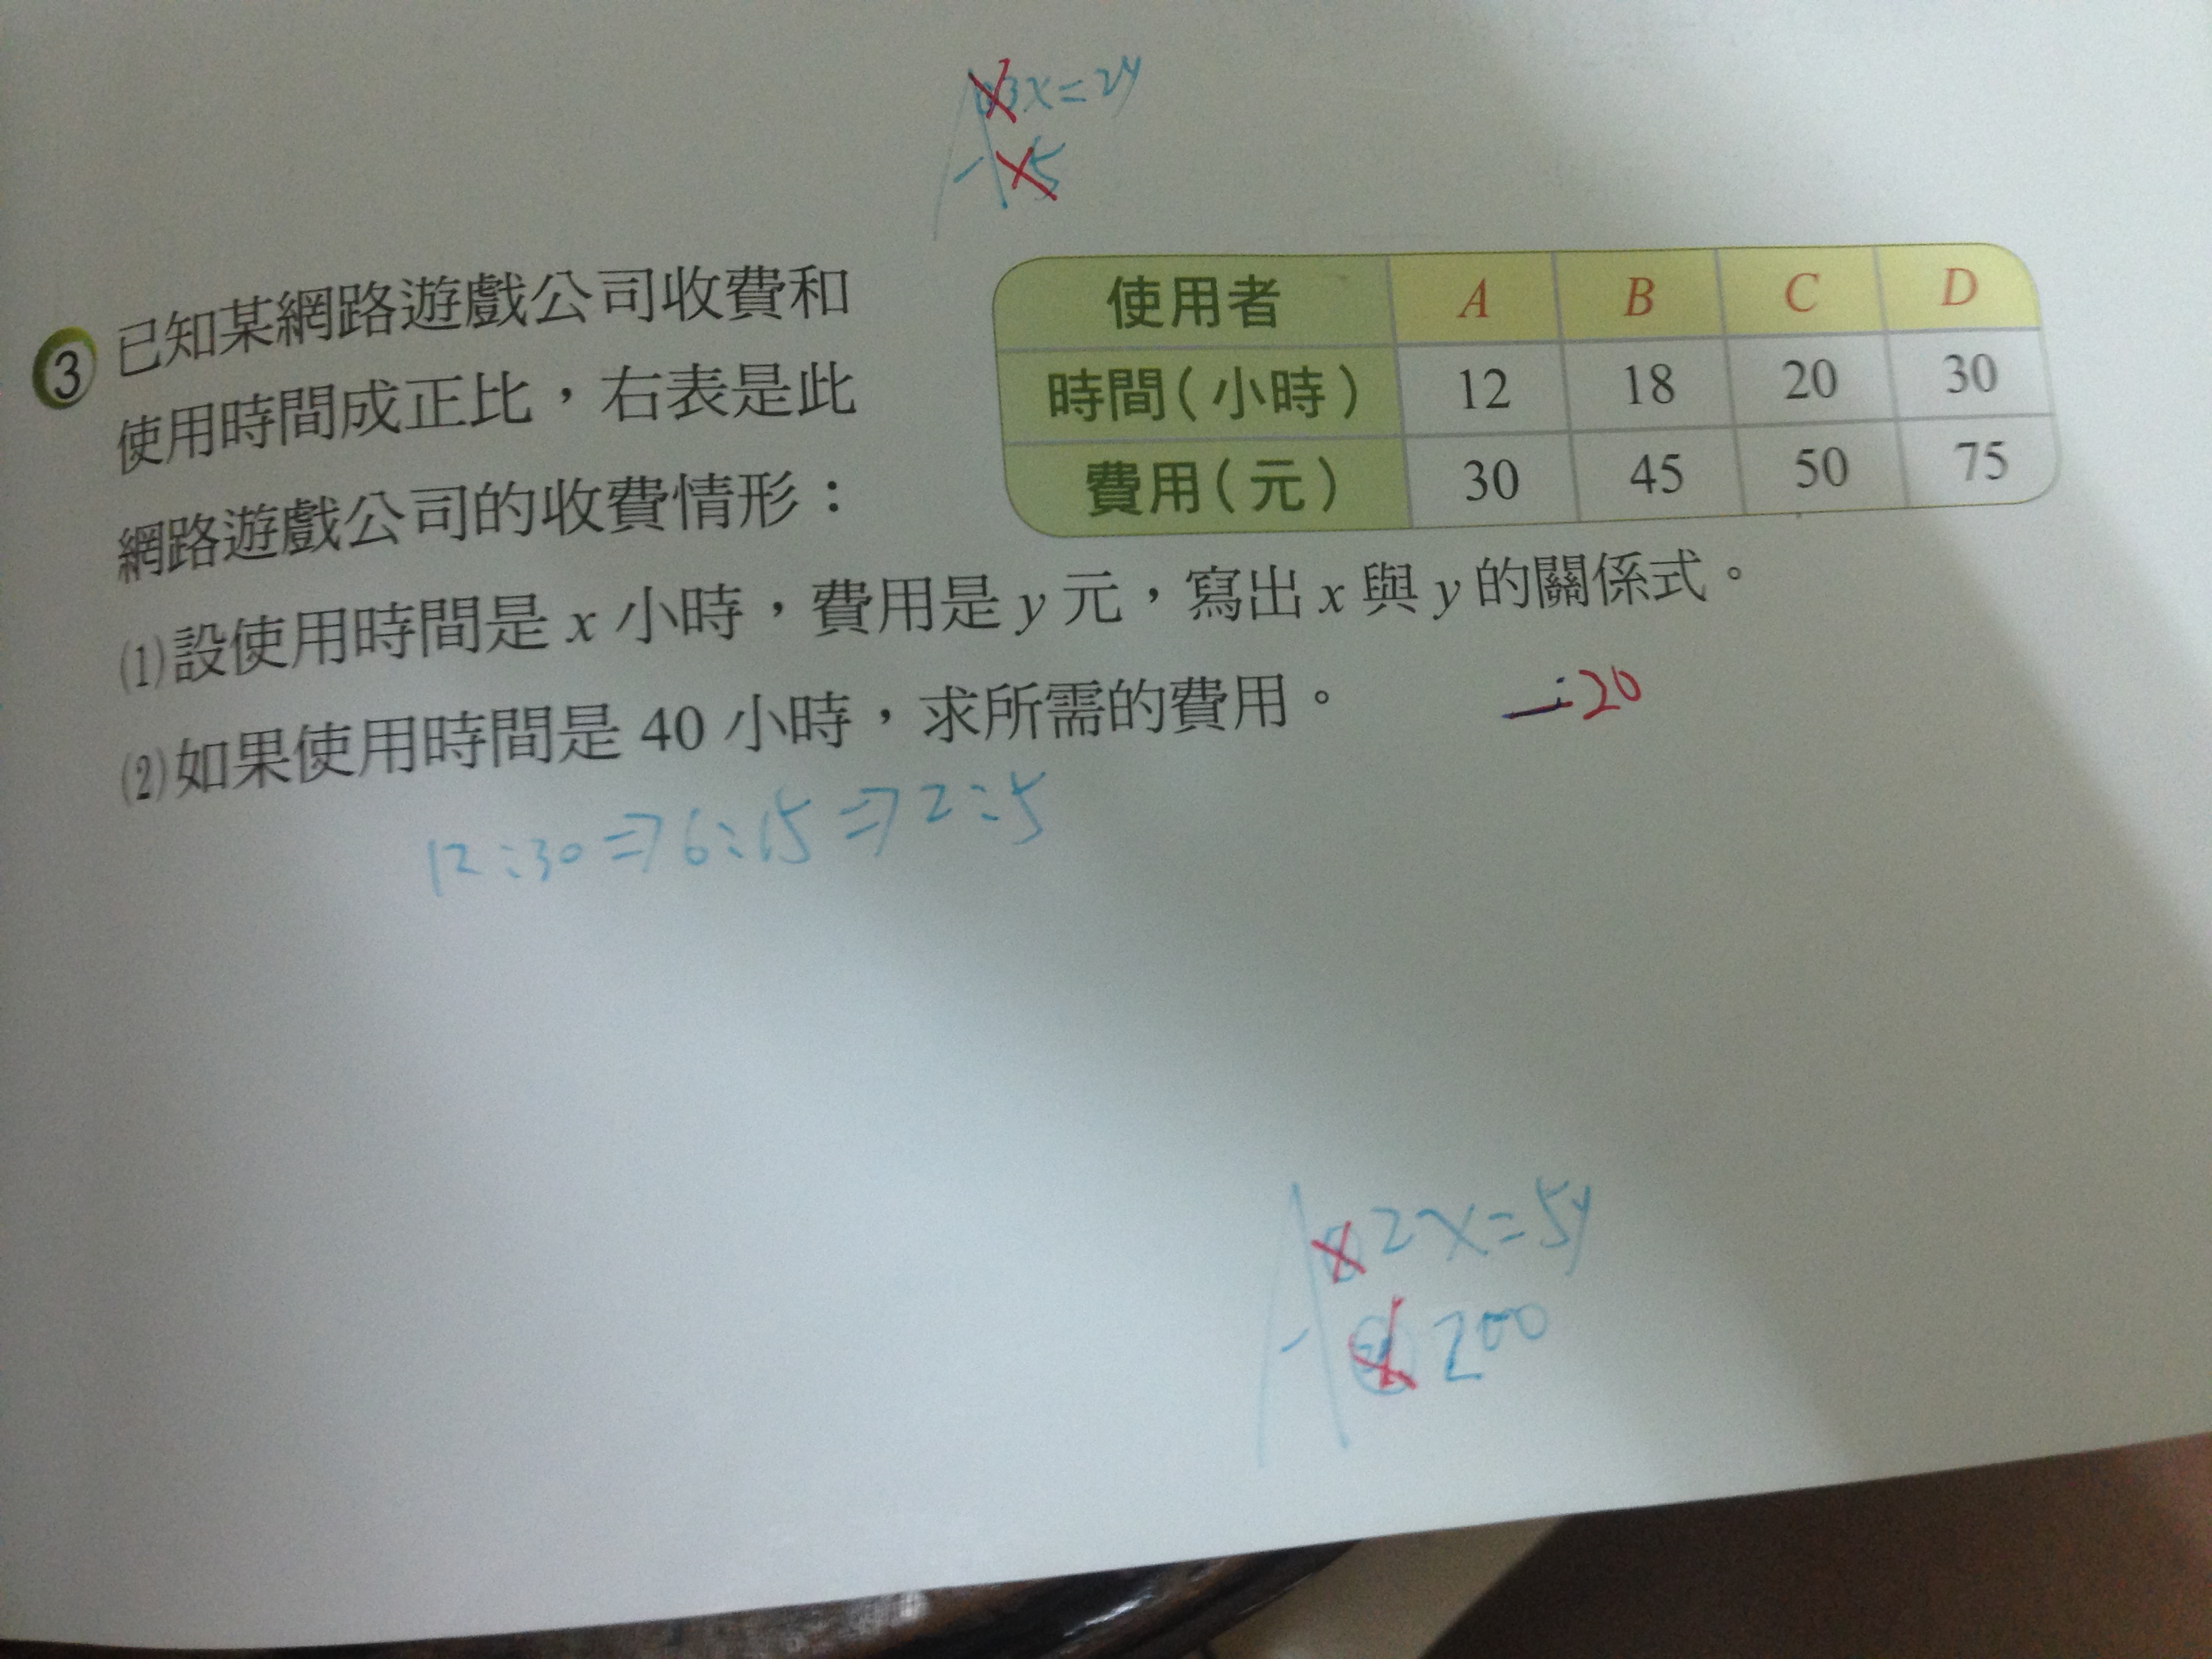 3x=2y
5
使用者 A B C D
時間(小時) 12 18 20 30
費用(元) 30 45 50 75
③ 已知某網路遊戲公司收費和
使用時間成正比，右表是此
網路遊戲公司的收費情形：
⑴設使用時間是 x 小時，費用是 y 元，寫出 x 與 y 的關係式。
⑵如果使用時間是 40 小時，求所需的費用。
-20
12:30⇒6:15⇒2:5
2x=5y
200